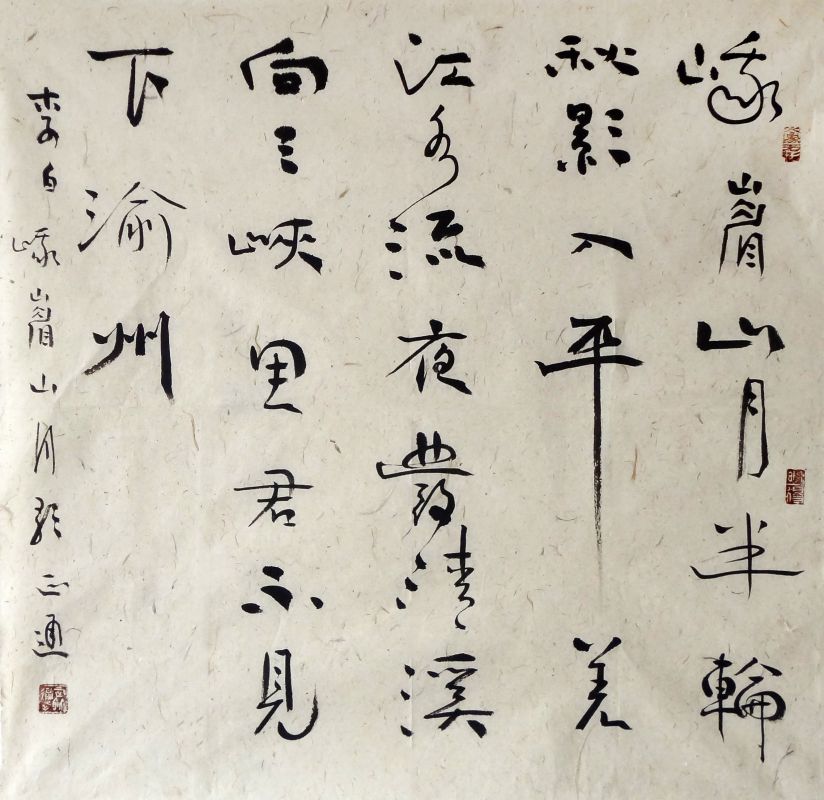 峨嵋山月半輪
秋影入平羌
江水流夜發清溪
向三峽思君不見
下渝州
李白峨嵋山月歌 正通